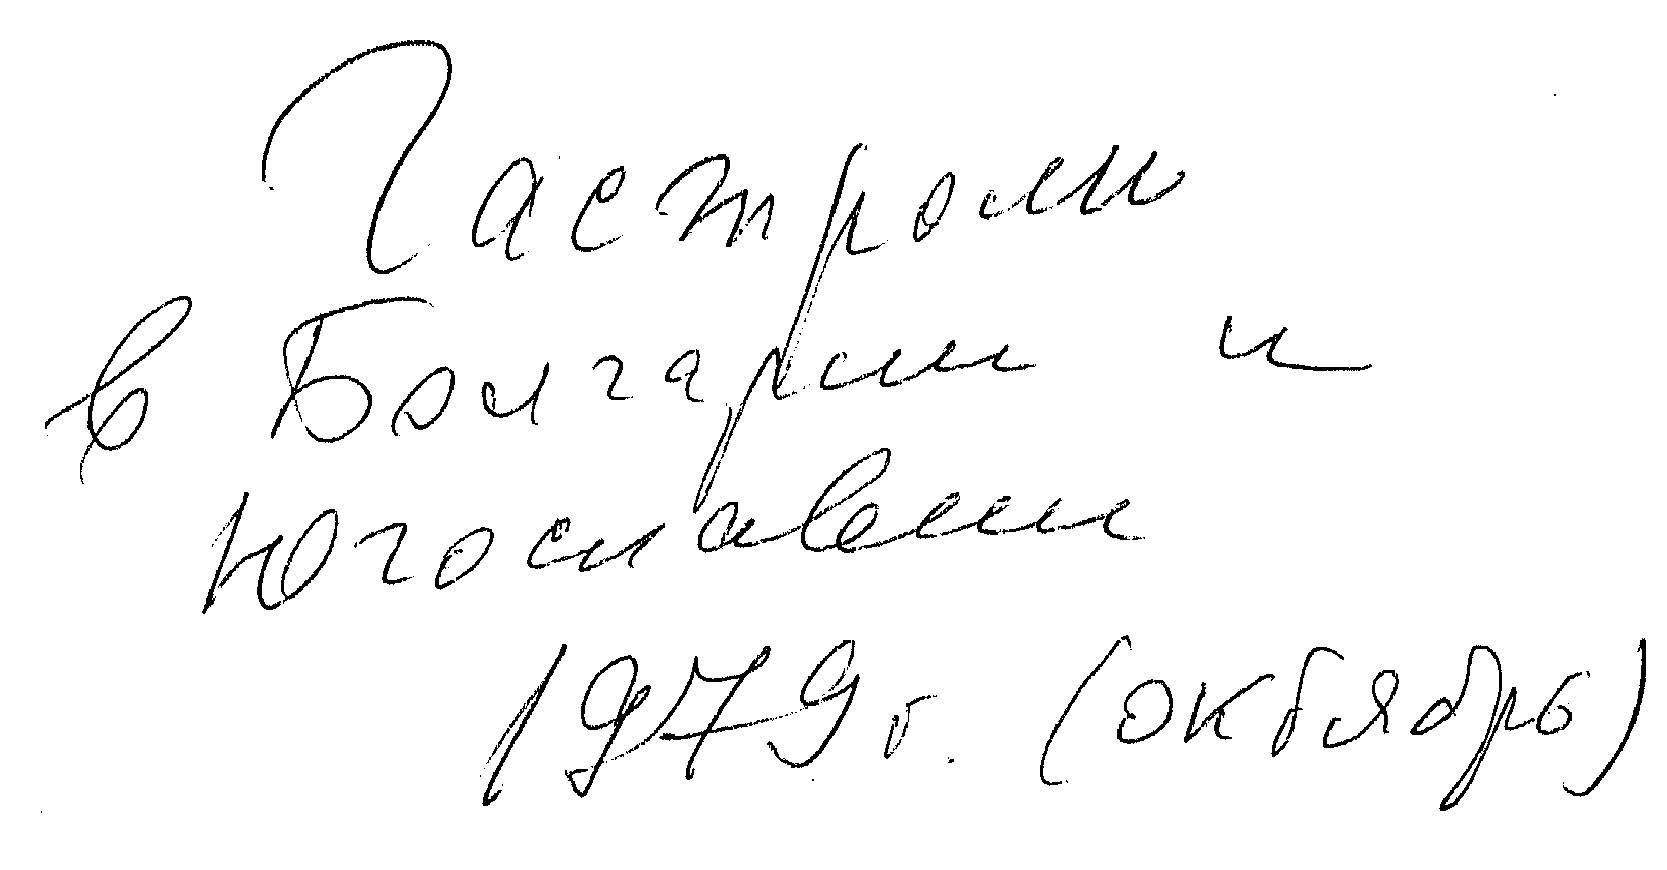 Гастроли
в Болгарии и
Югославии
1979 г. (октябрь)